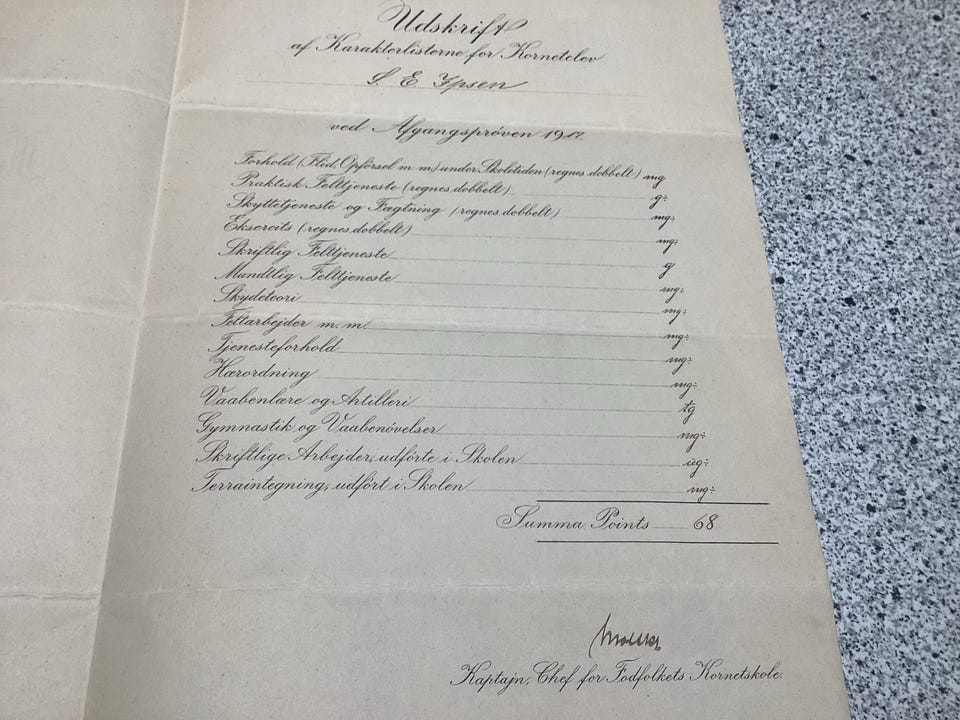 Udskrift
af Karakterlisterne for Kornetelev
S. E. Ypsen
ved Afgangsprøven 1917.
Forhold (Flid, Opførsel m m) under Skoletiden (regnes dobbelt) mg
Praktisk Felttjeneste (regnes dobbelt) g÷
Skyttetjeneste og Fægtning (regnes dobbelt) mg÷
Eksercits (regnes dobbelt) mg÷
Skriftlig Felttjeneste g
Mundtlig Felttjeneste mg÷
Skydeteori mg÷
Feltarbejder m. m. mg÷
Tjenesteforhold mg÷
Hærordning mg÷
Vaabenlære og Artilleri tg
Gymnastik og Vaabenøvelser mg÷
Skriftlige Arbejder, udførte i Skolen ug÷
Terraintegning, udført i Skolen mg÷
Summa Points 68
Kaptajn, Chef for Fodfolkets Kornetskole.